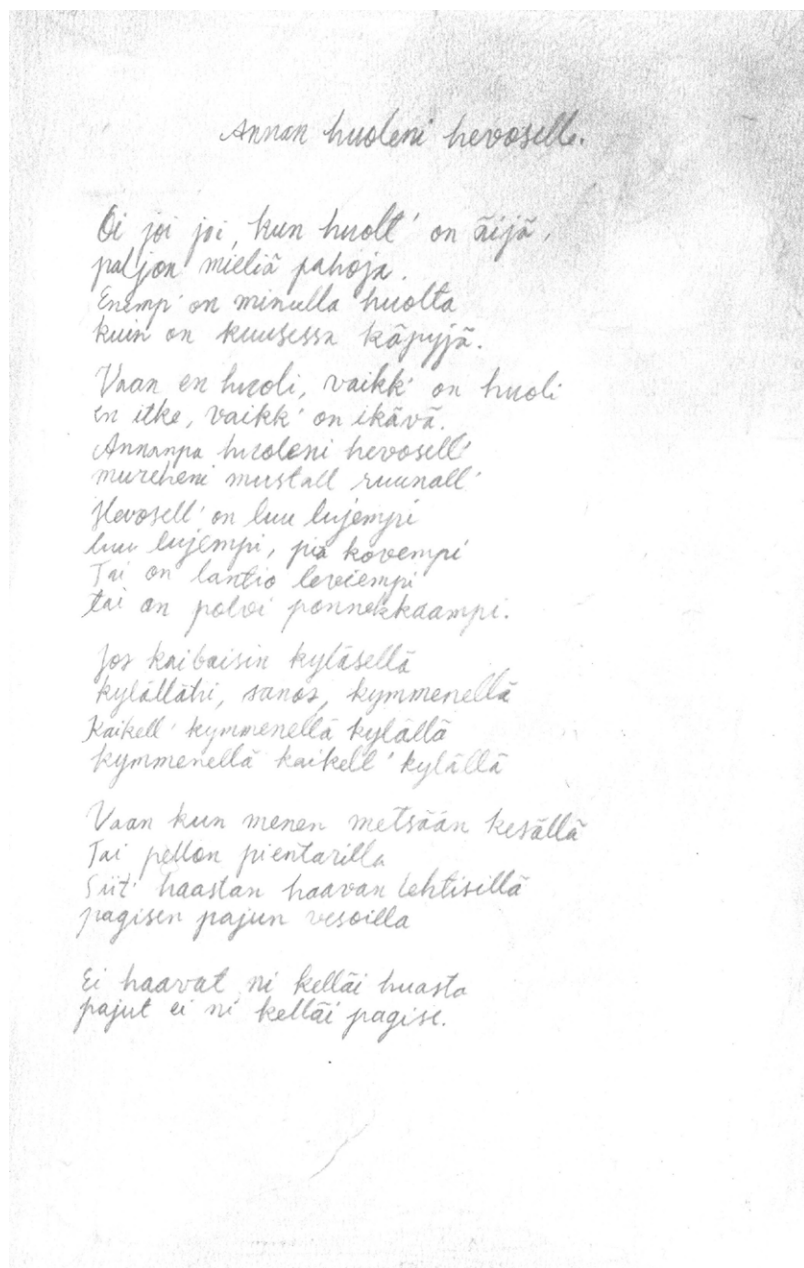 Annan huoleni hevoselle.
Oi joi joi, kun huolt' on äijä,
paljon mieliä pahoja.
Enemp' on minulla huolta
kuin on kuusessa käpyjä.
Vaan en huoli, vaikk' on huoli
en itke, vaikk' on ikävä.
Annanpa huoleni hevosell'
murheheni mustall ruunall'
Hevosell' on luu lujempi
luu lujempi, pää kovempi
Tai on lantio leviempi
tai on polvi ponnekkaampi.
Jos kaibaisin kyläsellä
kylällähi, sanos, kymmenellä
Kaikell' kymmenellä kylällä
kymmenellä kaikell' kylällä
Vaan kun menen metsään kesällä
Tai pellon pientarilla
Siit' haastan haavan lehtisillä
pagisen pajun vesoilla
Ei haavat ni kelläi huasta
pajut ei ni kelläi pagise.